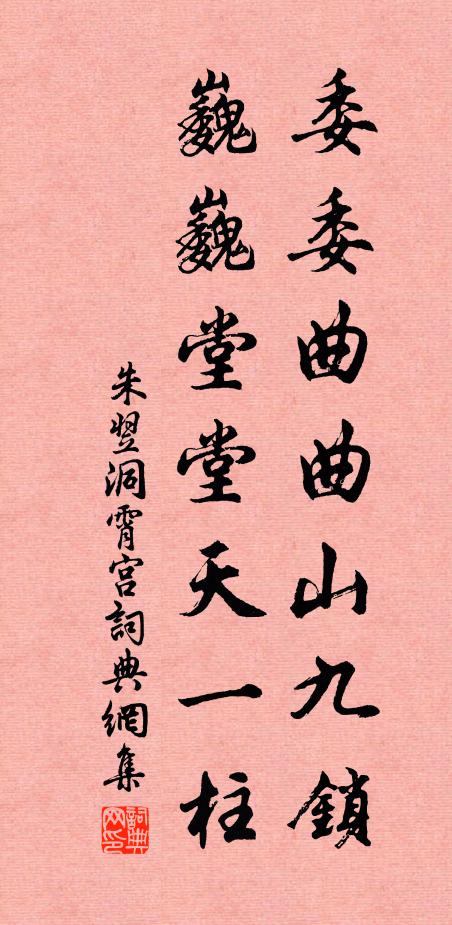 委委曲曲山九鎖
巍巍堂堂天一柱
朱翌洞霄宮詞典網集
詞典网印